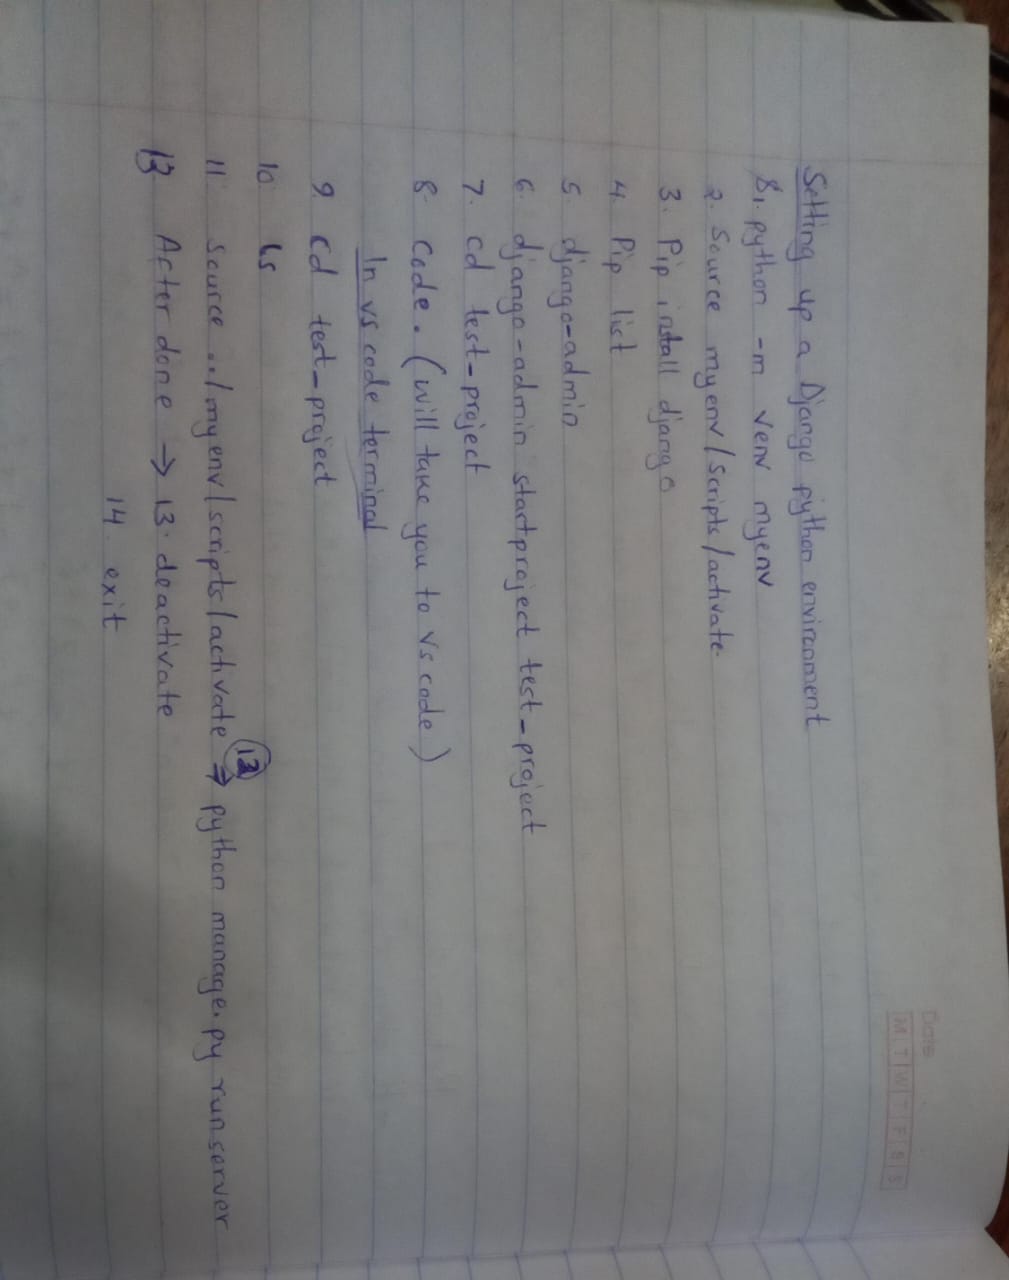 Date
M T W T F S S
Setting up a Django python environment
1. python -m venv myenv
2. source myenv/scripts/activate.
3. Pip install django
4. Pip list
5. django-admin
6. django-admin startproject test-project
7. cd test-project
8. code . (will take you to Vs code)
In vs code terminal
9. cd test-project
10 ls
11. source ../myenv/scripts/activate ⇒ (12) python manage.py runserver
13 After done → 13. deactivate
14 exit